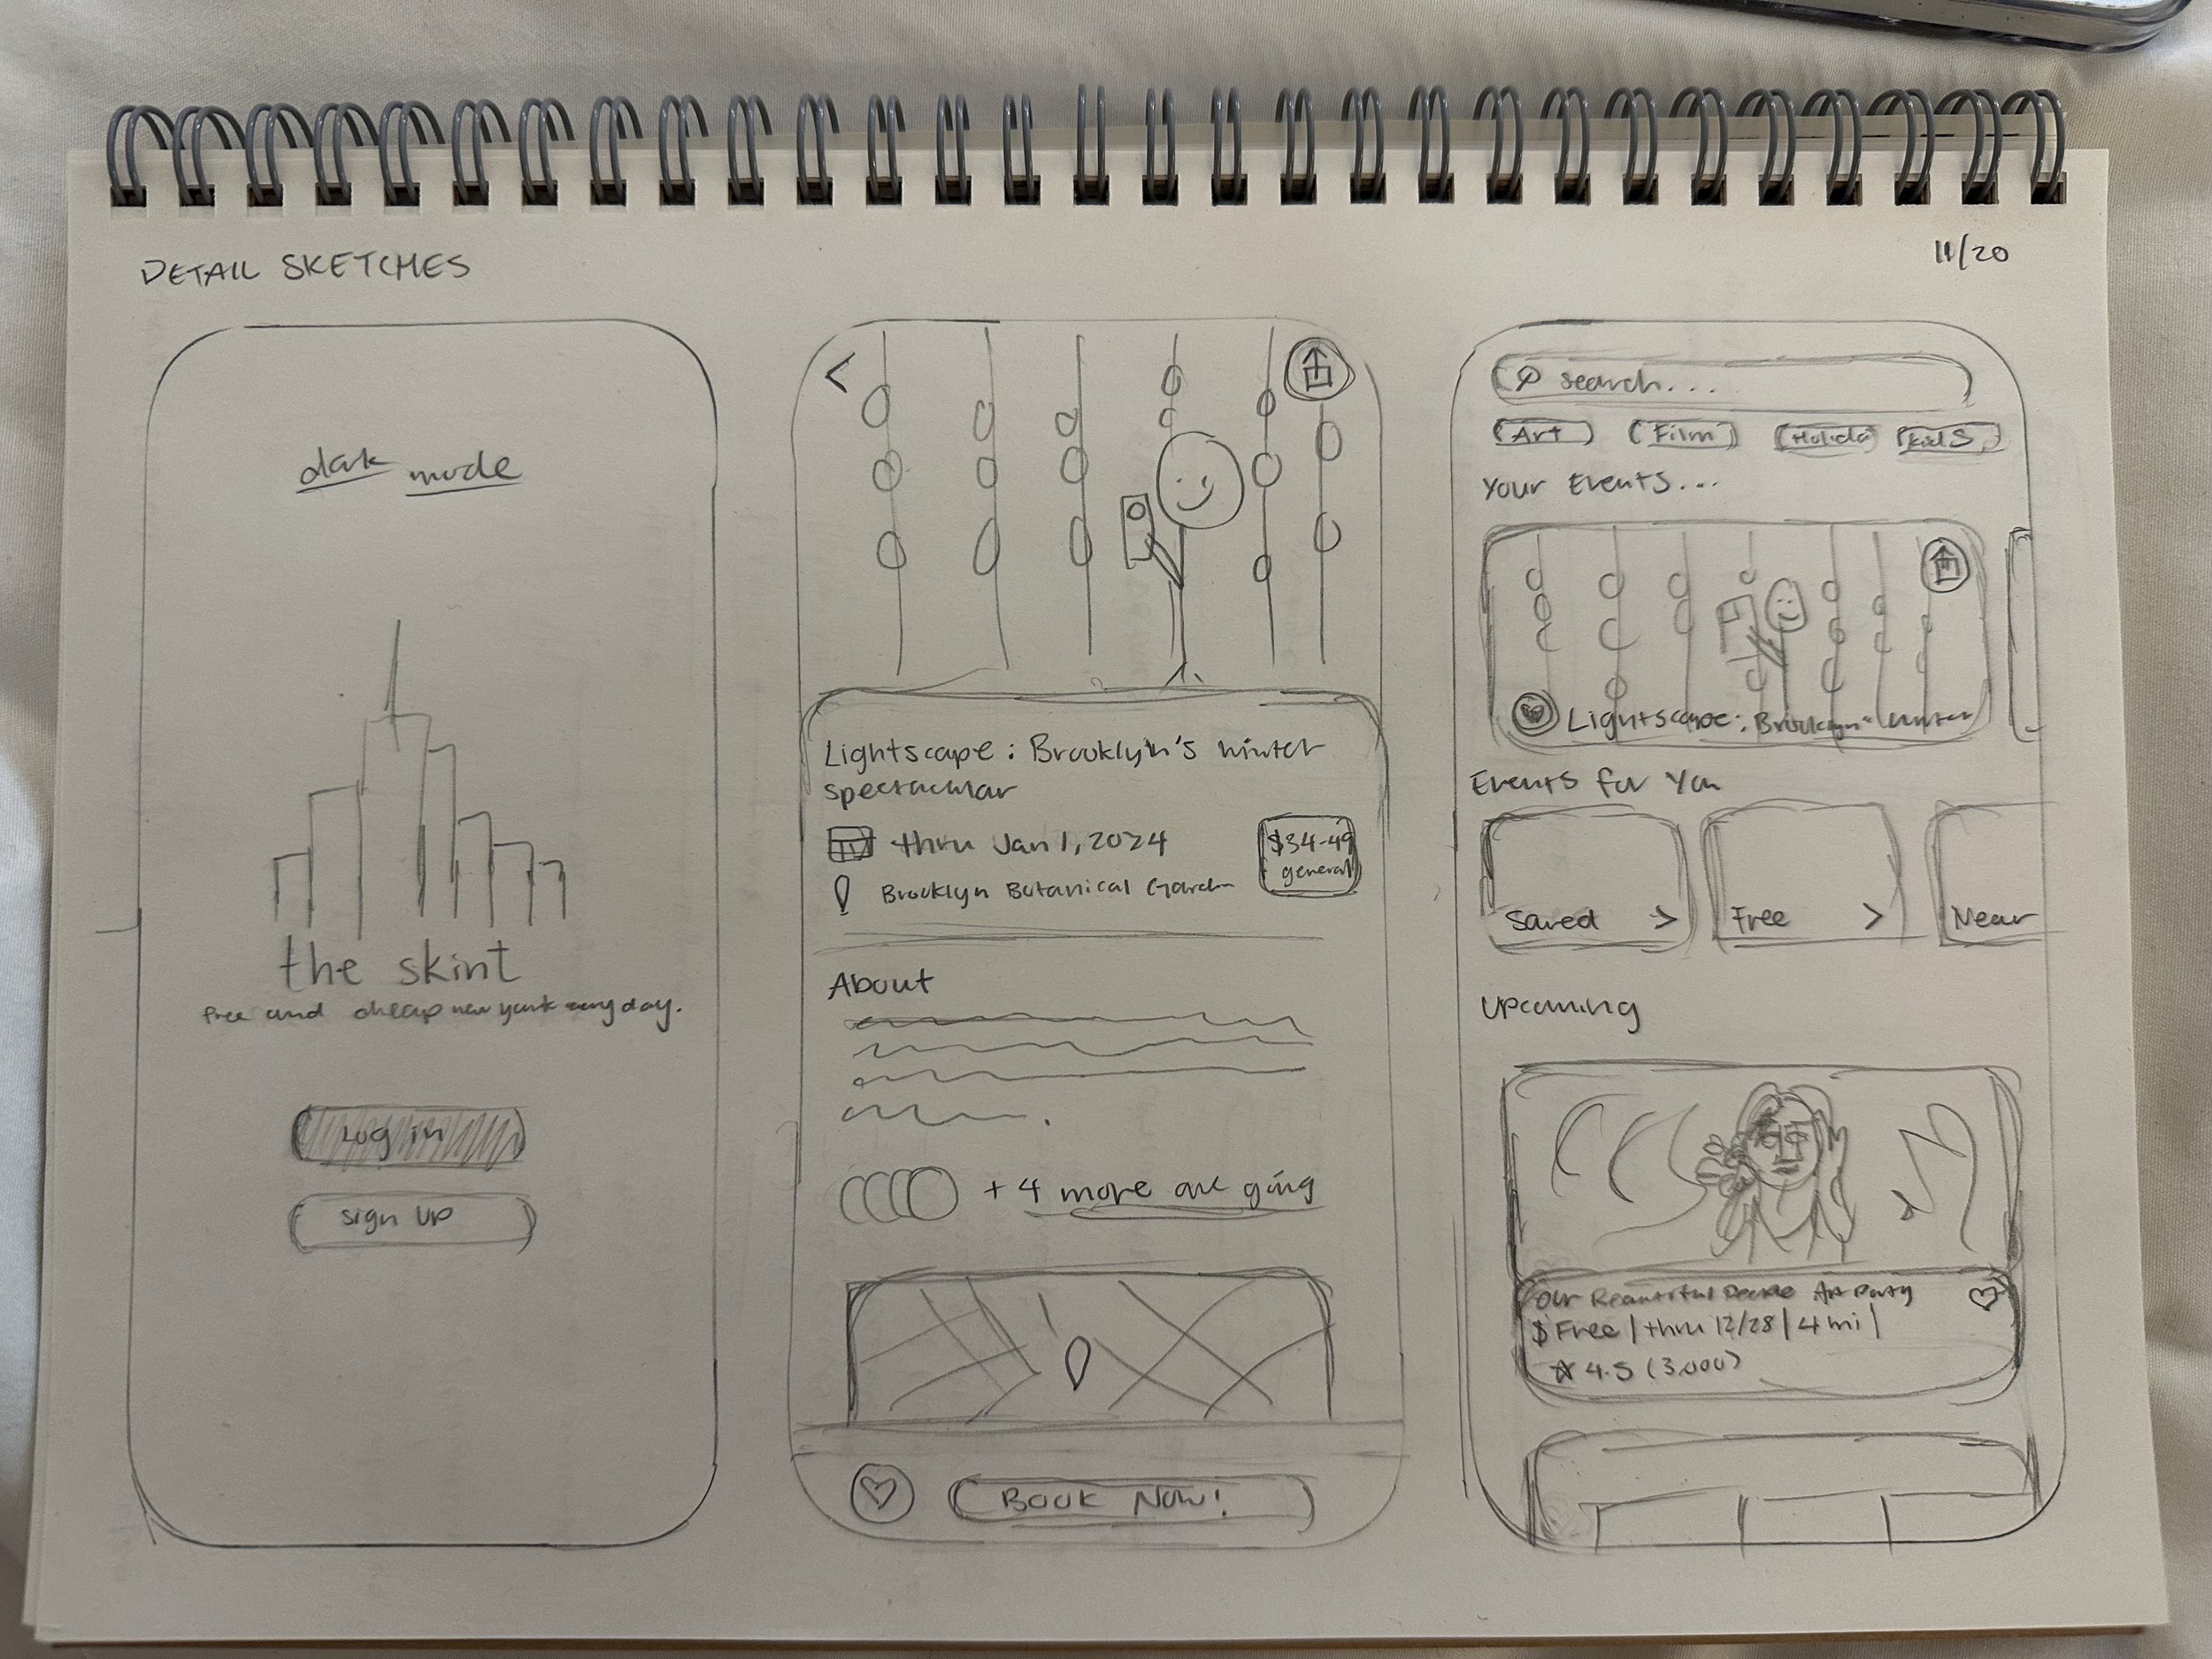 DETAIL SKETCHES
11/20
dark mode
the skint
free and cheap new york every day.
Log in
sign up
<
Lightscape: Brooklyn's winter
spectacular
thru Jan 1, 2024
$34-49
general
Brooklyn Botanical Garden
About
+ 4 more are going
BOOK NOW!
search...
Art
Film
Holida
Kids
Your Events...
Lightscape: Brooklyn's winter
Events for You
Saved >
Free >
Near
Upcoming
Our Beautiful Art Party
$ Free | thru 12/28 | 4 mi |
☆ 4.5 (3,000)